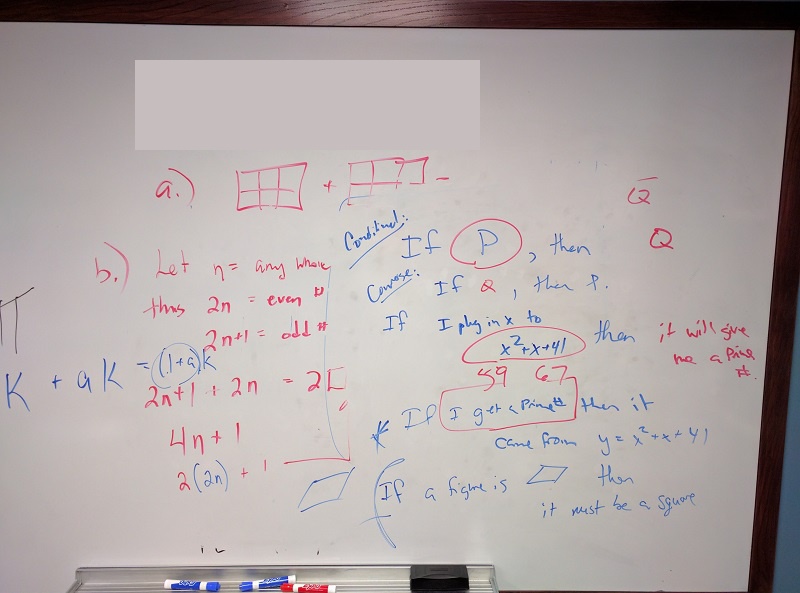 a.) + -
b.) Let n = any whole
thus 2n = even #
2n+1 = odd #
K + aK = (1+a)K
2n+1 + 2n = 2[
4n+1
2(2n) + 1
Q
Q
Conditional: If P, then
Converse: If Q, then P.
If I plug in x to
x²+x+41 then it will give
me a prime
#.
59 67
* If I get a prime # then it
came from y = x²+x+41
If a figure is then
it must be a square